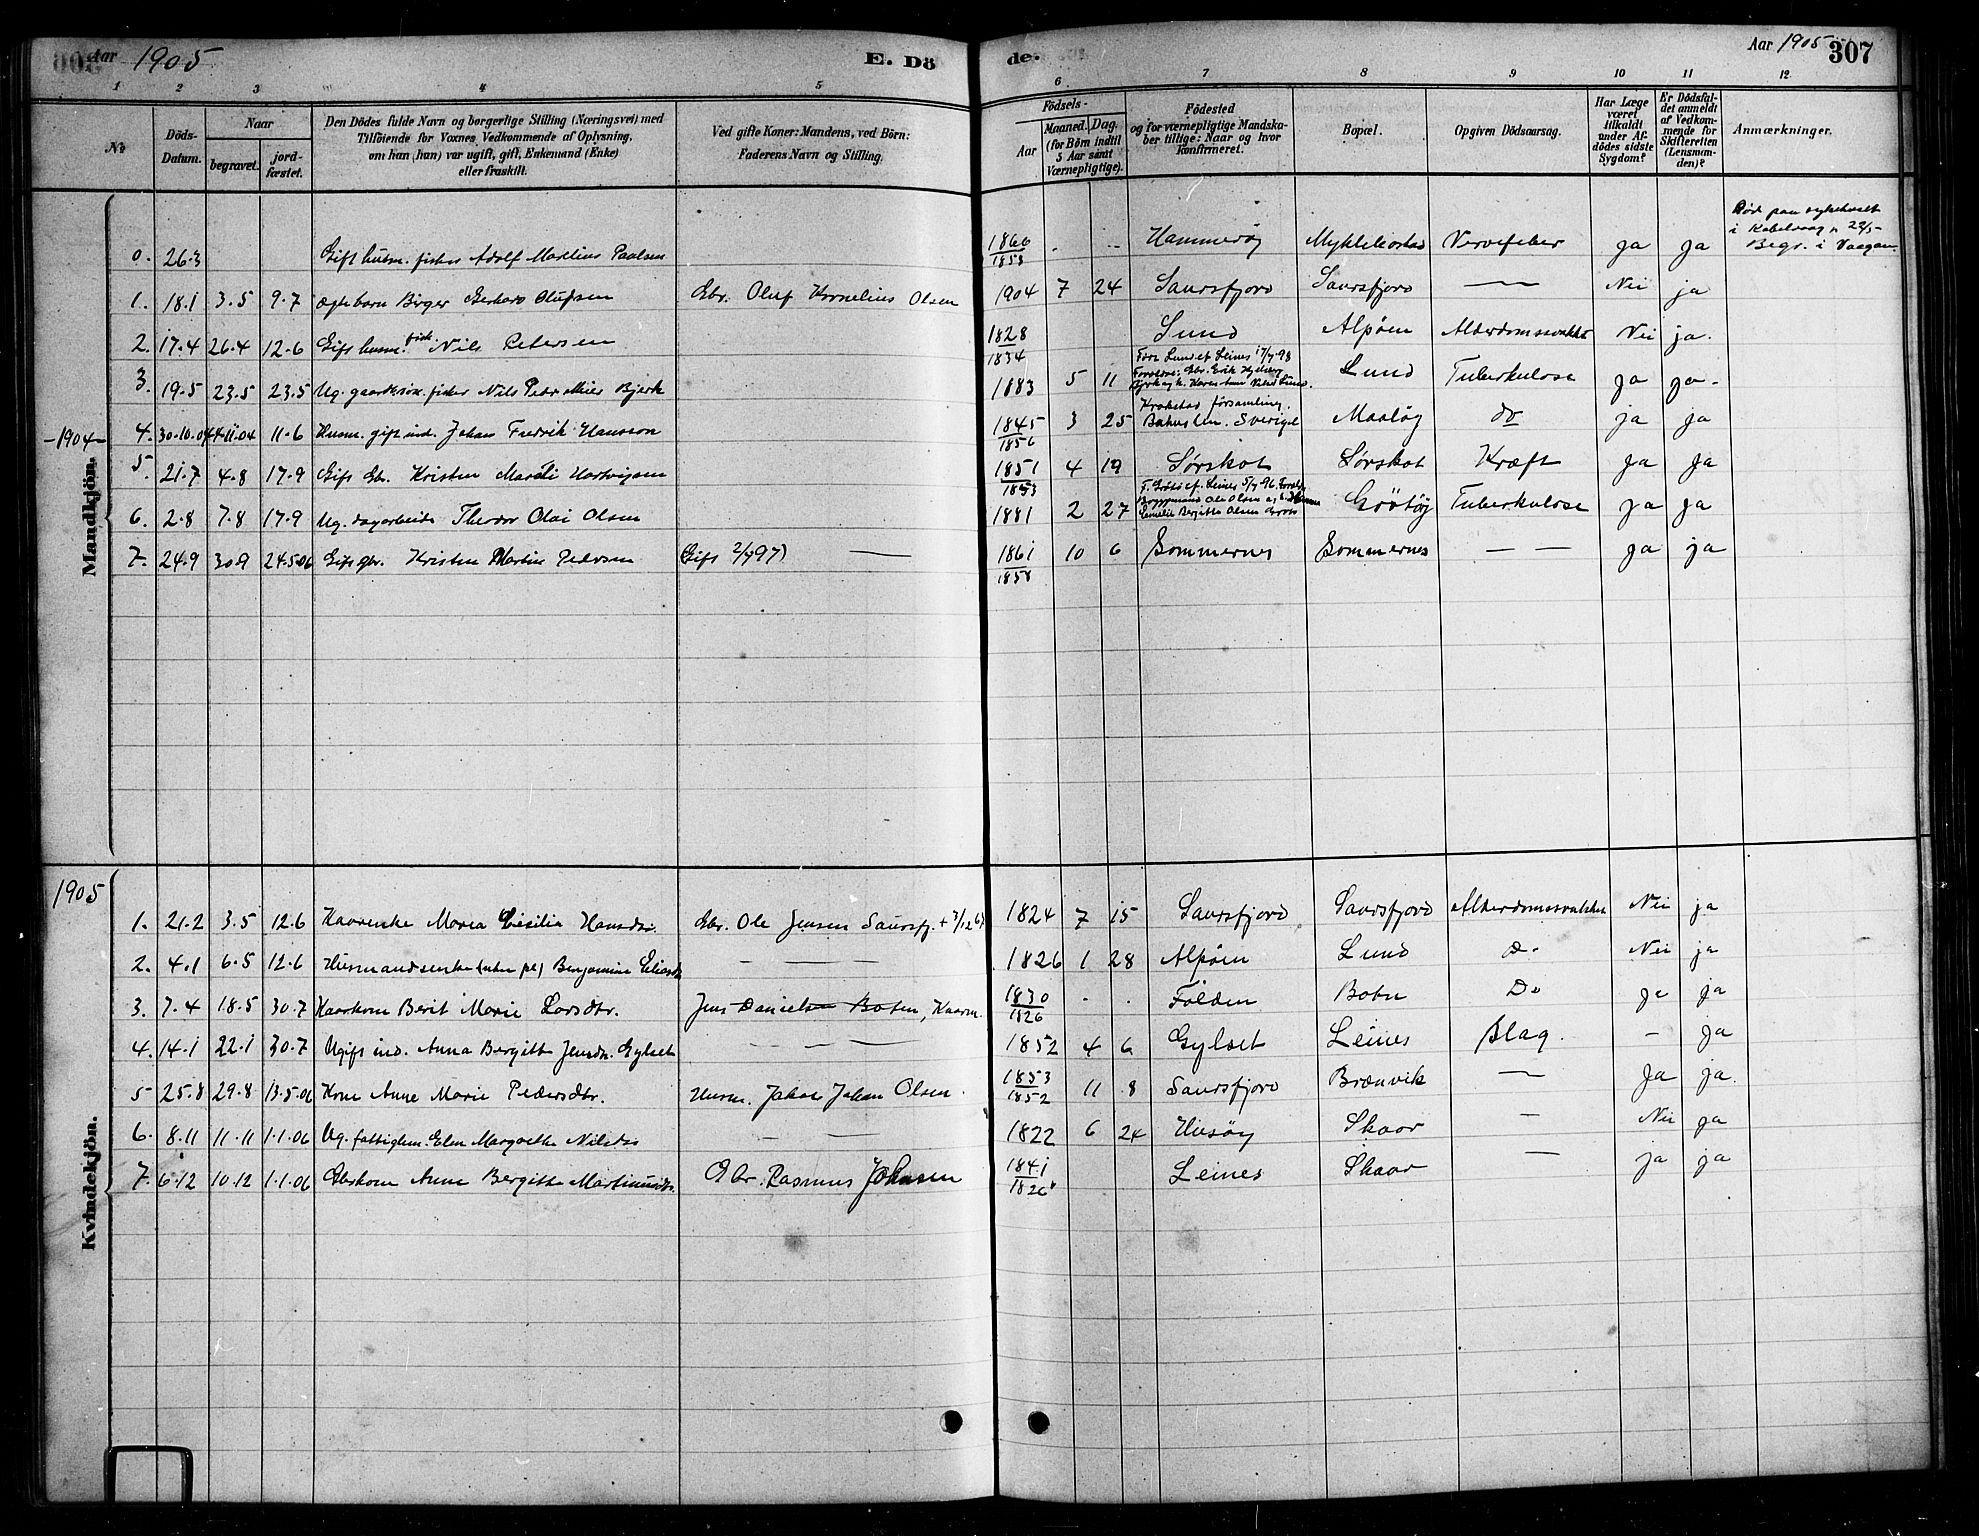 Aar 1905 E. Dö
de. Aar 1905 307
1 2 3 4 5 6 7 8 9 10 11 12
No
Döds-Datum.
Naar
begravet.
jord-fæstet.
Den Dödes fulde Navn og borgerlige Stilling (Næringsvei) med
Tilföiende for Voxnes Vedkommende af Oplysning,
om han (hun) var ugift, gift, Enkemand (Enke)
eller fraskilt.
Ved gifte Koner: Mandens, ved Börn:
Faderens Navn og Stilling.
Födsels-
Aar
Maaned. Dag.
(for Börn indtil
5 Aar samt
Værnepligtige).
Födested
og for værnepligtige Mandska-
ber tillige: Naar og hvor
konfirmeret.
Bopæl.
Opgiven Dödsaarsag.
Har Læge
været
tilkaldt
under Af-
dödes sidste
Sygdom?
Er Dödsfal-
det anmeldt
af Vedkom-
mende for
Skifteretten
(Lensman-
den)?
Anmærkninger.
Mandkjön.
Død paa sykehuset
i Kabelvaag
Begr. i Vaagan
0. 26.3 Gift husm. fisker Adolf Marelius Paulsen 1866 1858 Hammerøy Nervefeber ja ja
1. 18.1 3.5 9.7 Ægtebarn Birger Gerhard Olufsen Gbr. Oluf Kornelius Olsen 1904 7 24 Saursfjord Saursfjord — Nei ja
2. 17.4 26.4 12.6 Gift husm. fisk. Nils Petersen 1828 1834 Lund Alpøen Alderdomssvakhet Nei ja.
3. 19.5 23.5 23.5 Ug. gaardb.søn. fisker Nils Peder Bjerk 1883 5 11 Lund Tuberkulose ja ja
-1904- 4. 30.10.04 4.11.04 11.6 Husm. gift ind. Johan Fredrik Hansson 1845 1856 3 25 Krokstad forsamling, Bahus len. Sverige Maaløy do ja ja
5. 21.7 4.8 17.9 Gift Gbr. Kristen Hartvigsen 1851 1853 4 19 Sørskot Sørskot Kræft ja ja
6. 2.8 7.8 17.9 Ug. dagarbeider Theodor Olai Olsen 1881 2 27 Grøtøy Tuberkulose ja ja
7. 24.9 30.9 24.5.06 Gift gbr. Kristen Martin Pedersen Gift 2/7 97) — 1861 1858 10 6 Sommernes Sommernes — — ja ja
1905
Kvindekjön.
1. 21.2 3.5 12.6 Kaarenke Maria Cesilia Hansdtr. Gbr. Ole Jensen Saursfj. 1824 7 15 Saursfjord Saursfjord Alderdomssvakhet Nei ja
2. 4.1 6.5 12.6 Husmandsenke Benjamine Eliasdtr — — — 1826 1 28 Alpøen Lund Do Nei ja
3. 7.4 18.5 30.7 Kaarkone Berit Marie Larsdtr. Jens Danielsen Boten, Kaarm. 1830 1826 . . Folden Botn Do ja ja
4. 14.1 22.1 30.7 Ugift ind. Anna Bergitte Jensdtr. Gylset — — — 1852 4 6 Gylset Leines Slag. — ja
5 25.8 29.8 13.5.06 Kone Anne Marie Pedersdtr. Husm. Johan Olsen 1853 1852 11 8 Saursfjord Brænvik — ja ja
6. 8.11 11.11 1.1.06 Ug. fattiglem. Elen Margrethe Nilsdtr — — 1822 6 24 Husøy Skaar — Nei ja
7. 6.12 10.12 1.1.06 Gbrkone Anne Bergitte Martinusdtr. Gbr. Rasmus Johansen 1841 1826 Leines Skaar — ja ja